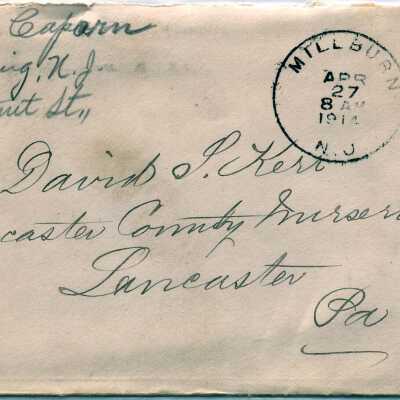 Caparn
N.J.
St.,
MILLBURN
APR
27
8 AM
1914
N.J.
David S. Kerr
caster County Nurser
Lancaster
Pa